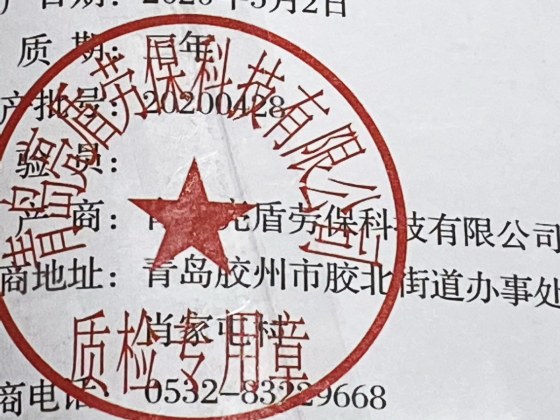 产日期：2020年5月2日
质 期：三年
产批号：20200428
验 员：
产 商：青岛尧盾劳保科技有限公司
商地址：青岛胶州市胶北街道办事处
肖家屯村
商电话：0532-83229668
青岛尧盾劳保科技有限公司
质检专用章